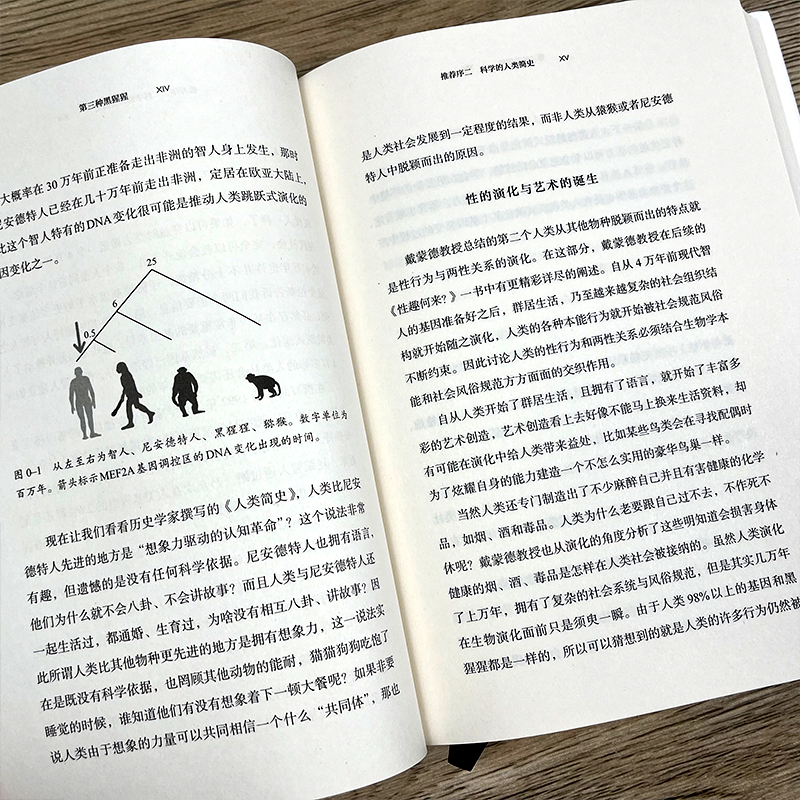 第三种黑猩猩 XIV
大概率在 30 万年前正准备走出非洲的智人身上发生，那时
尼安德特人已经在几十万年前走出非洲，定居在欧亚大陆上，
此这个智人特有的DNA变化很可能是推动人类跳跃式演化的
因变化之一。
25
6
0.5
图 0-1 从左至右为智人、尼安德特人、黑猩猩、猕猴。数字单位为
百万年。箭头标示MEF2A基因调控区的DNA变化出现的时间。
现在让我们看看历史学家撰写的《人类简史》，人类比尼安
德特人先进的地方是“想象力驱动的认知革命”？这个说法非常
有趣，但遗憾的是没有任何科学依据。尼安德特人也拥有语言，
他们为什么就不会八卦、不会讲故事？而且人类与尼安德特人还
一起生活过，都通婚、生育过，为啥没有相互八卦、讲故事？因
此所谓人类比其他物种更先进的地方是拥有想象力，这一说法实
在是既没有科学依据，也罔顾其他动物的能耐，猫猫狗狗吃饱了
睡觉的时候，谁知道他们有没有想象着下一顿大餐呢？如果非要
说人类由于想象的力量可以共同相信一个什么“共同体”，那也
推荐序二 科学的人类简史 XV
是人类社会发展到一定程度的结果，而非人类从猿猴或者尼安德
特人中脱颖而出的原因。
性的演化与艺术的诞生
戴蒙德教授总结的第二个人类从其他物种脱颖而出的特点就
是性行为与两性关系的演化。在这部分，戴蒙德教授在后续的
《性趣何来？》一书中有更精彩详尽的阐述。自从 4 万年前现代智
人的基因准备好之后，群居生活，乃至越来越复杂的社会组织结
构就开始随之演化，人类的各种本能行为就开始被社会规范风俗
不断约束。因此讨论人类的性行为和两性关系必须结合生物学本
能和社会风俗规范方方面面的交织作用。
自从人类开始了群居生活，且拥有了语言，就开始了丰富多
彩的艺术创造，艺术创造看上去好像不能马上换来生活资料，却
有可能在演化中给人类带来益处，比如某些鸟类会在寻找配偶时
为了炫耀自身的能力建造一个不怎么实用的豪华鸟巢一样。
当然人类还专门制造出了不少麻醉自己并且有害健康的化学
品，如烟、酒和毒品。人类为什么老要跟自己过不去，不作死不
休呢？戴蒙德教授也从演化的角度分析了这些明知道会损害身体
健康的烟、酒、毒品是怎样在人类社会被接纳的。虽然人类演化
了上万年，拥有了复杂的社会系统与风俗规范，但是其实几万年
在生物演化面前只是须臾一瞬。由于人类 98% 以上的基因和黑
猩猩都是一样的，所以可以猜想到的就是人类的许多行为仍然被